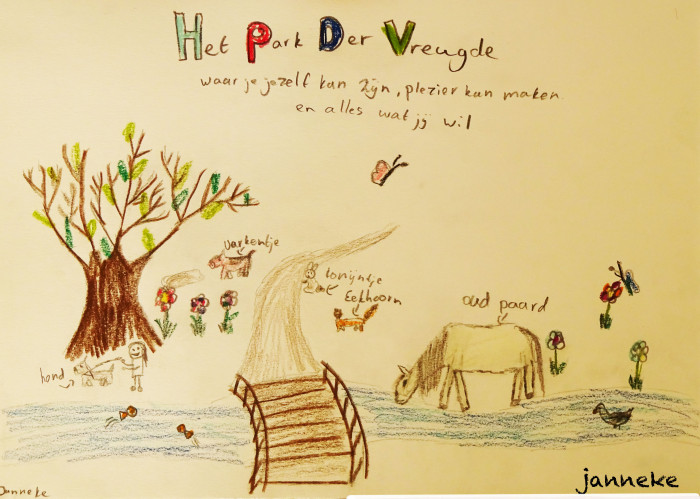 Het Park Der Vreugde
waar je jezelf kan zijn, plezier kan maken
en alles wat jij wil
varkentje
konijntje
Eekhoorn
oud paard
hond
Janneke
janneke